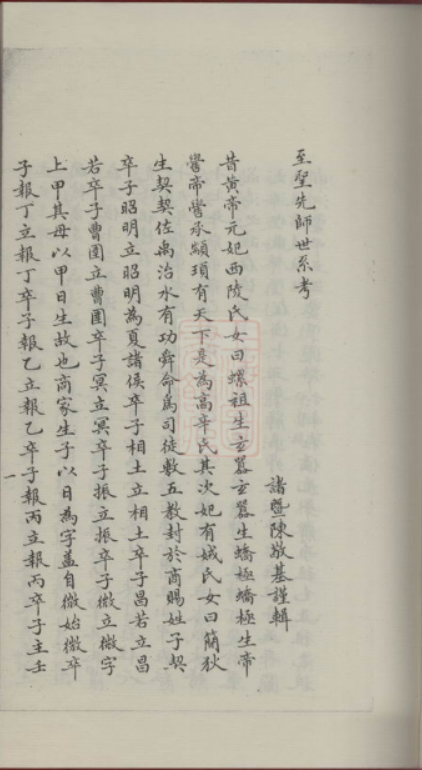 至聖先師世系考
諸暨陳敬基謹輯
昔黃帝元妃西陵氏女曰螺祖生玄囂玄囂生蟜極蟜極生帝
嚳帝嚳承顓頊有天下是為高辛氏其次妃有娀氏女曰簡狄
生契契佐禹治水有功舜命為司徒敷五教封於商賜姓子契
卒子昭明立昭明為夏諸侯卒子相土立相土卒子昌若立昌
若卒子曹圉立曹圉卒子冥立冥卒子振立振卒子微立微字
上甲其母以甲日生故也商家生子以日為字蓋自微始微卒
子報丁立報丁卒子報乙立報乙卒子報丙立報丙卒子主壬
一